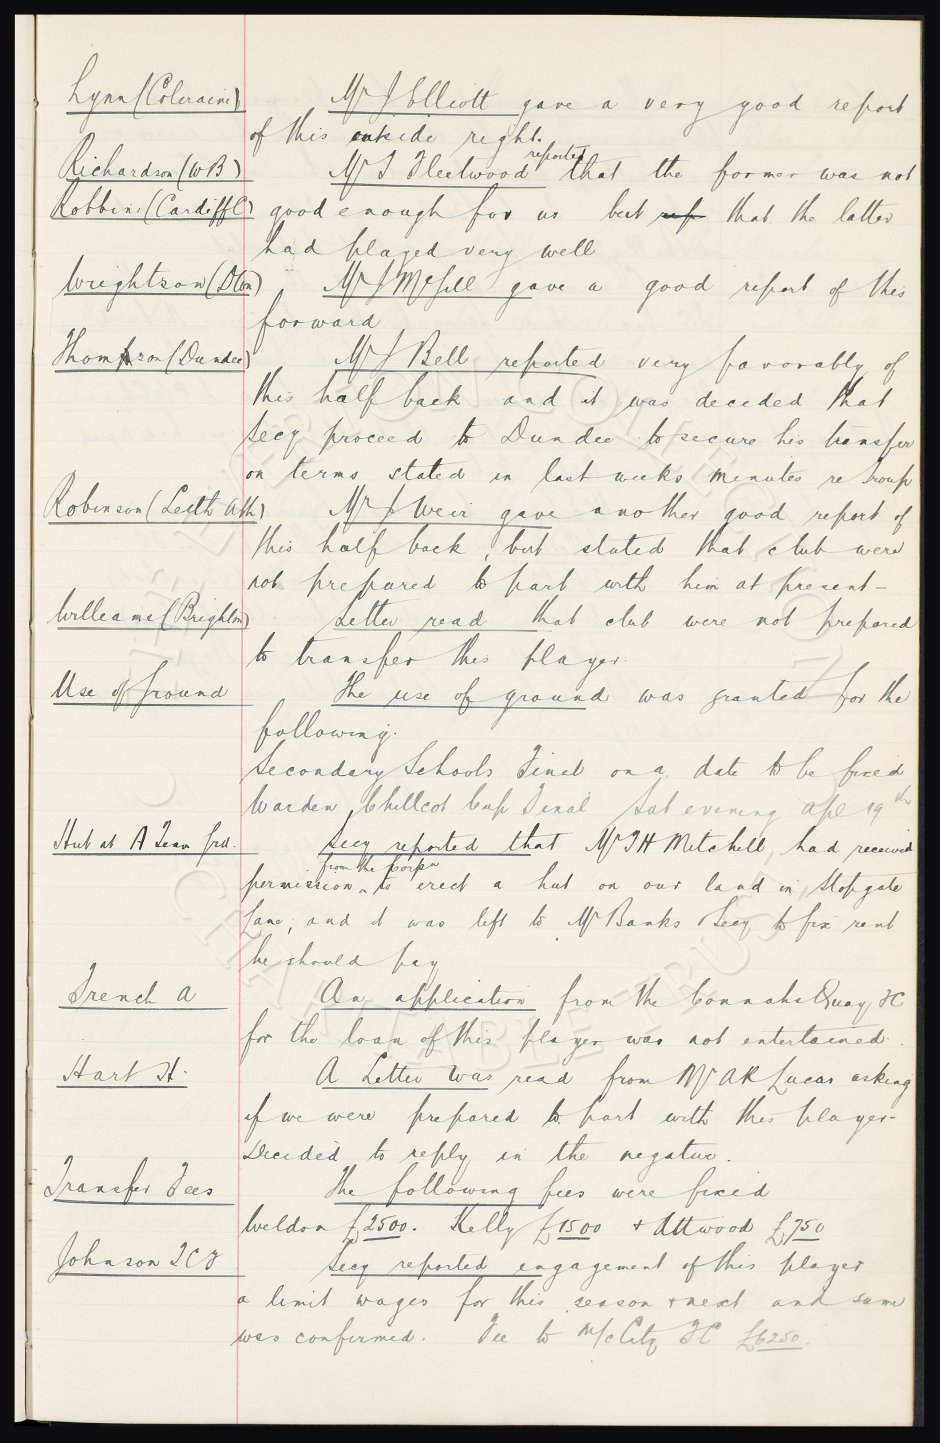 Lynn (Coleraine) Mr J Elliott gave a very good report
of this outside right.
Richardson (WB) Mr T Fleetwood reported that the former was not
Robbins (Cardiff C) good enough for us but rep that the latter
had played very well
Wrightson (Dton) Mr J McGill gave a good report of this
forward
Thomson (Dundee) Mr J Bell reported very favorably of
this half back and it was decided that
Secy proceed to Dundee to secure his transfer
on terms stated in last weeks minutes re Troup
Robinson (Leith Ath) Mr J Weir gave another good report of
this half back, but stated that club were
not prepared to part with him at present-
Williams (Brighton) Letter read that club were not prepared
to transfer this player.
Use of Ground The use of ground was granted for the
following.
Secondary Schools Final on a date to be fixed
Warden Chillcot Cup Final Sat evening Apl 19th
Hut at A Team Grd. Secy reported that Mr T H Mitchell had received
permission from the Corpn to erect a hut on our land in Stopgate
Lane, and it was left to Mr Banks Secy to fix rent
he should pay
French A An application from the Connahs Quay FC
for the loan of this player was not entertained.
Hart H. A Letter was read from Mr A R Lucas asking
if we were prepared to part with this player.
Decided to reply in the negative.
Transfer Fees The following fees were fixed
Weldon £2500. Kelly £1500 + Attwood £750
Johnson T C F Secy reported engagement of this player
a limit wages for this season + next and same
was confirmed. Fee to M/c City FC £6250.
THE EVERTON COLLECTION
CHARITABLE TRUST